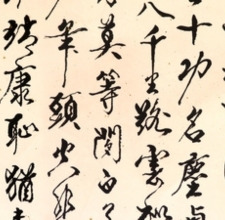 十功名塵
八千里路雲和
莫等閒白了
年頭空悲
靖康恥猶